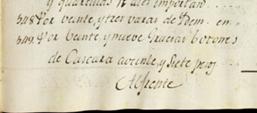 y quarenta p.s uno importan
348 Por veinte, y tres varas de Ydem. en
349 Por veinte, y nueve Gruezas botones
de Cascara a veinte, y siete pesos
Al frente